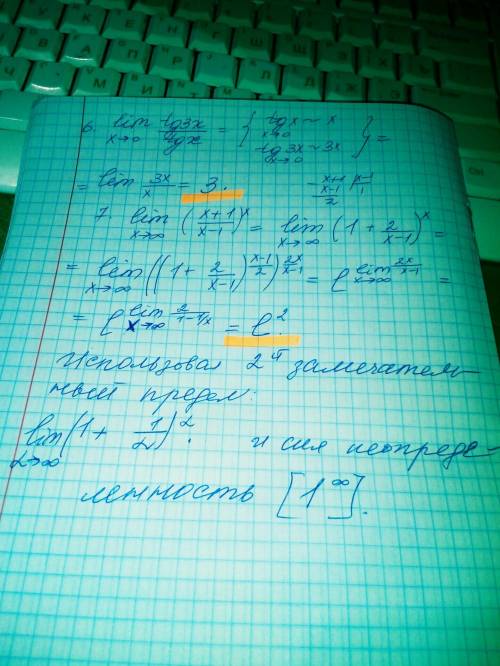 6. lim x→0 tg3x/tgx = { tgx ~ x x→0 tg3x ~ 3x x→0 } =
= lim x→0 3x/x = 3.
7. lim x→∞ ((x+1)/(x-1))^x = lim x→∞ (1 + 2/(x-1))^x =
= lim x→∞ ((1 + 2/(x-1))^((x-1)/2))^(2x/(x-1)) = e^(lim x→∞ 2x/(x-1)) =
= e^(lim x→∞ 2/(1-1/x)) = e^2.
Использовал 2й замечатель-
ный предел.
lim α→∞ (1 + 1/α)^α. и сия неопреде-
ленность [1^∞].